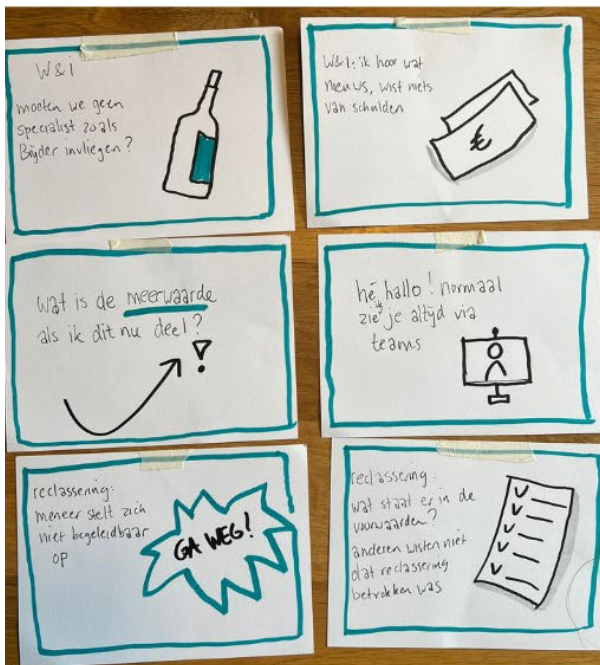 W&i
moeten we geen
specialist zoals
Brijder invliegen?
W&I: ik hoor wat
nieuws, wist niets
van schulden
€
wat is de meerwaarde
als ik dit nu deel?
!
hé hallo! normaal
zie ik je altijd via
teams
reclassering:
meneer stelt zich
niet begeleidbaar
op
GA WEG!
reclassering:
wat staat er in de
voorwaarden?
anderen wisten niet
dat reclassering
betrokken was